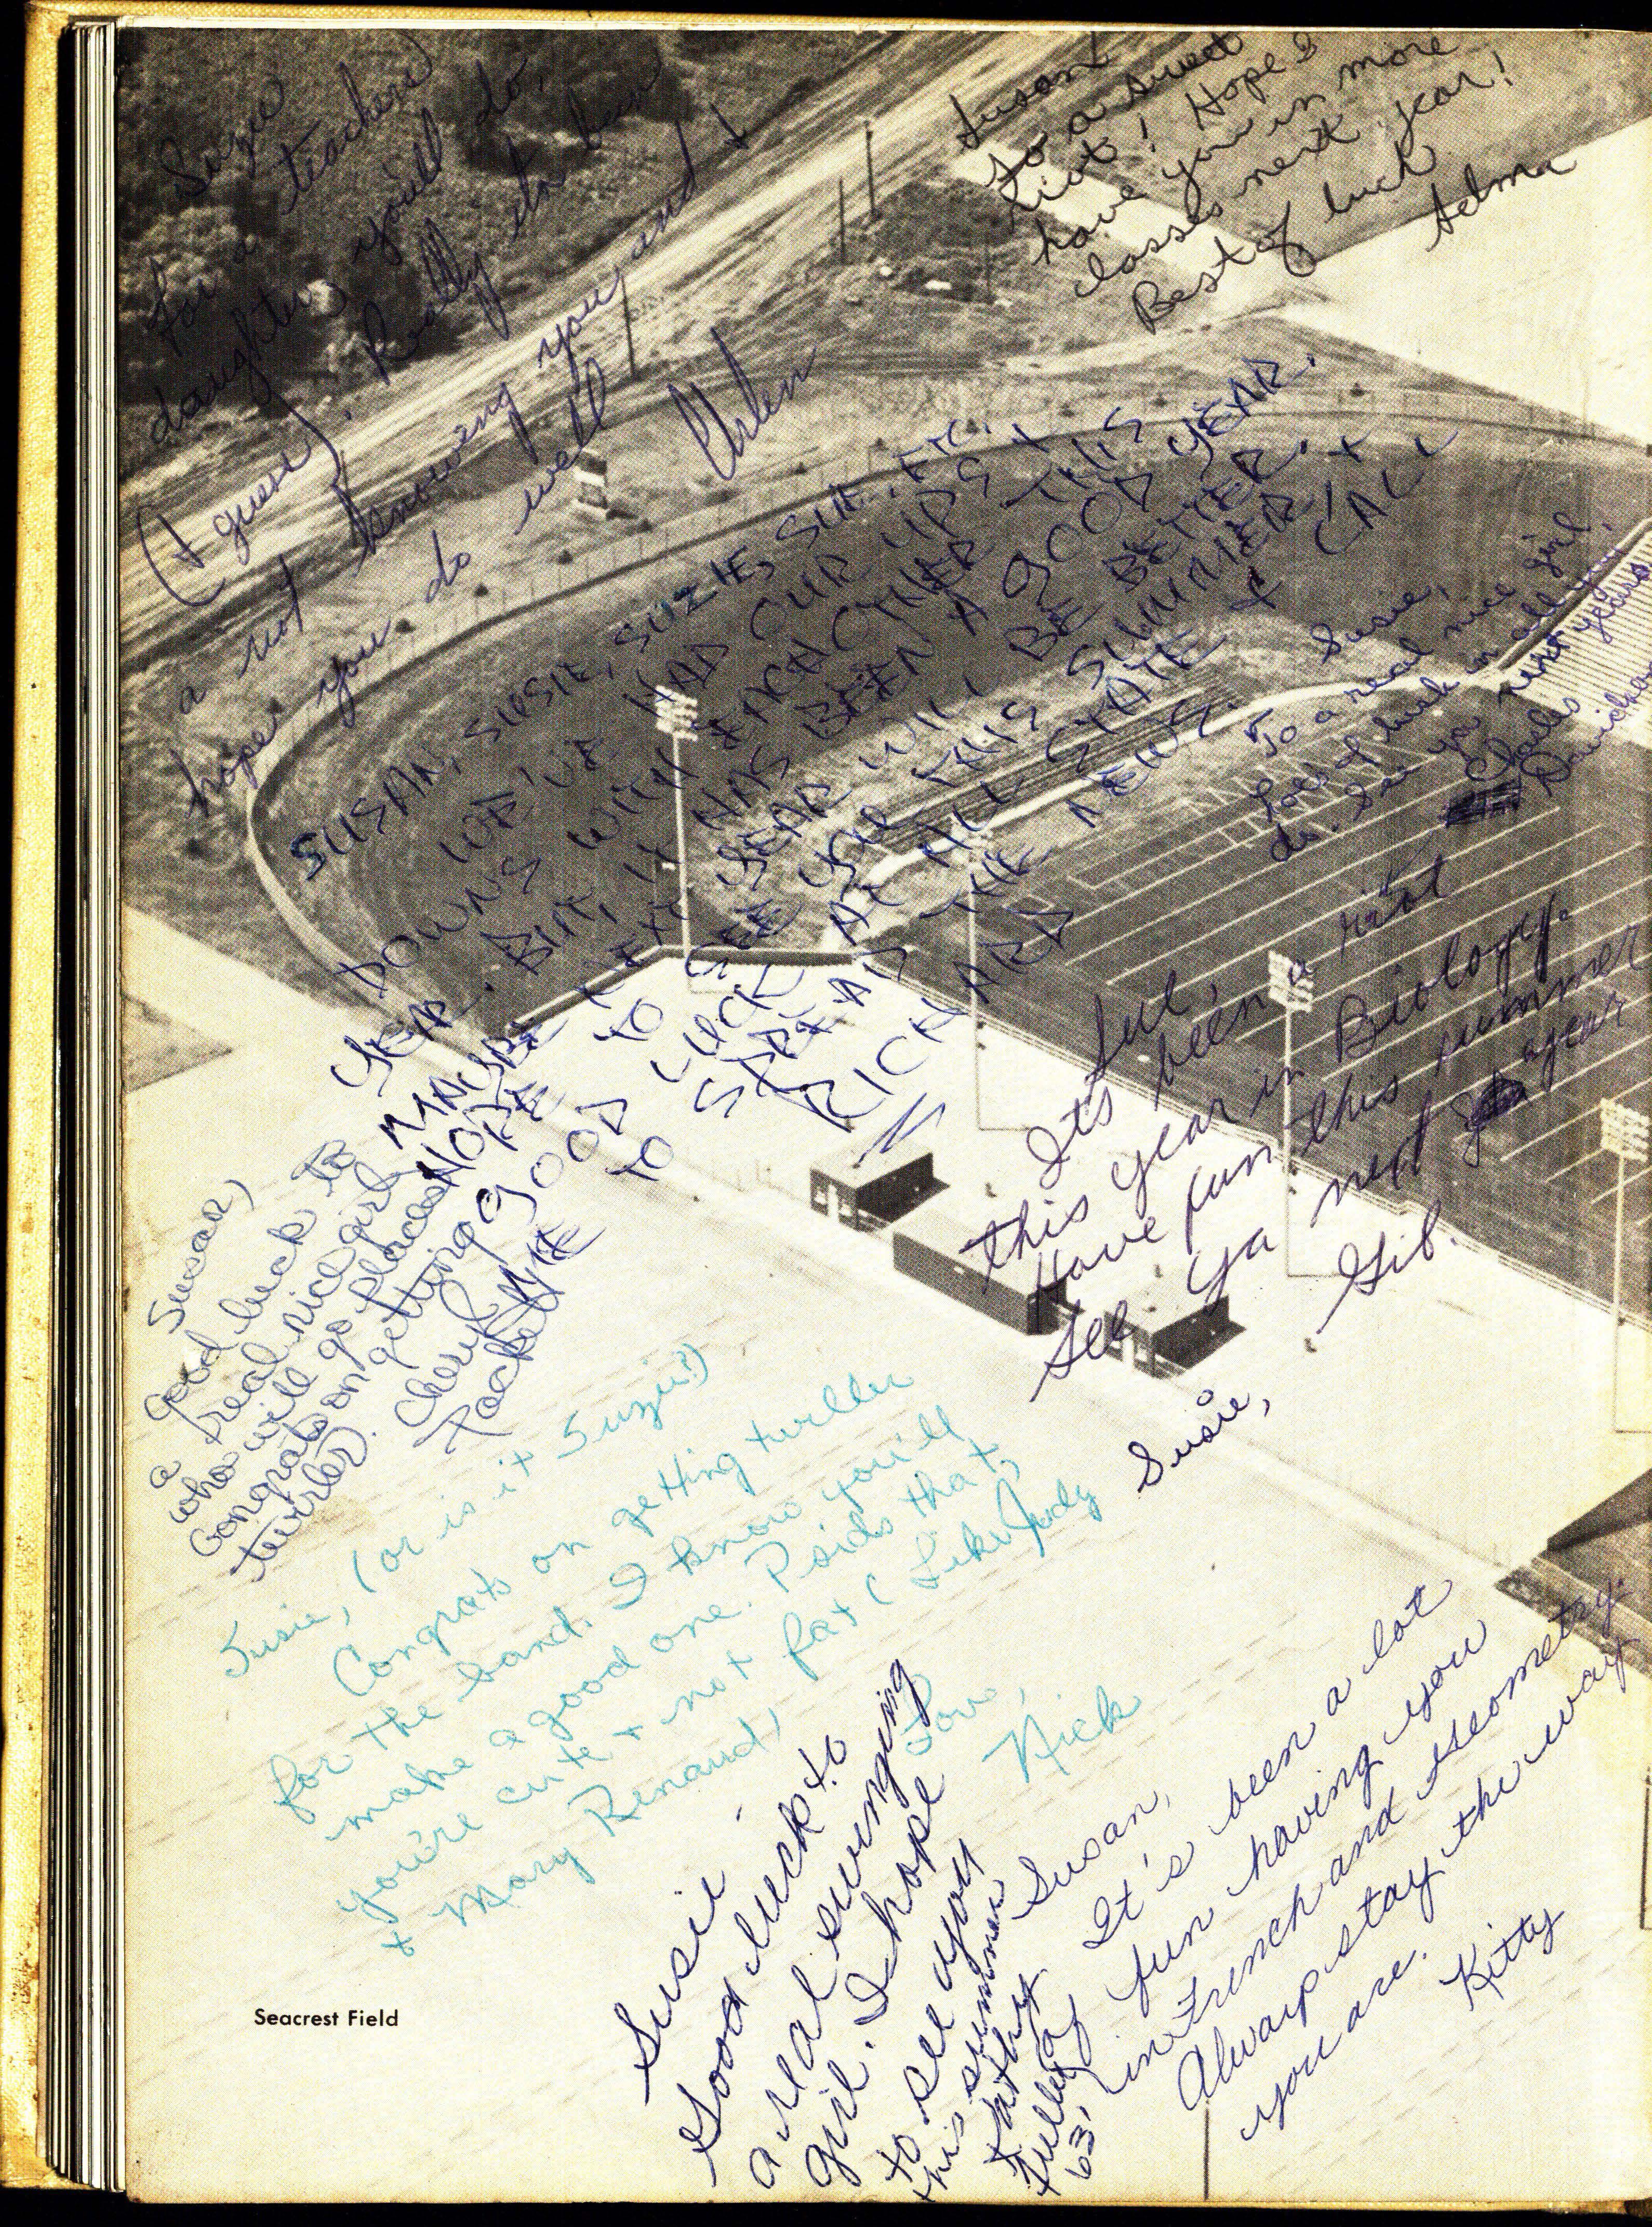 Suzie
for a teachers
daughter you'll do,
(I guess). Really it's been
a riot knowing you and I
hope you do well
Susan
To a sweet
riot! Hope I
have you in more
classes next year!
Best of luck
Selma
SUSAN, SUSIE, SUZIE, SUE, ETC.
WE'VE HAD OUR UPS +
DOWNS WITH EACH OTHER THIS
YEAR. BUT IT HAS BEEN A GOOD YEAR.
MAYBE NEXT YEAR WILL BE BETTER.
HOPE TO SEE YOU THIS SUMMER, +
GOOD LUCK AT ALL STATE +
TO SPREAD THE NEWS.
RICHARD
Susie,
To a real nice girl,
lots of luck in all you
do. See you next years
Charles
Sue,
It's been a riot
this year in Biology.
Have fun this summer
See ya next year
Gib.
Susan,
Good luck to
a real nice girl
who will go places.
Congrats on getting
twirler.
Cheryl
Susie, (or is it Suzie?)
Congrats on getting twirller
for the band. I know you'll
make a good one. Psids that,
you're cute + not fat (Like Judy
+ Mary Renaud)
Love,
Nick
Susie,
Susie -
Good luck to
a real swinging
girl. I hope
to see you
this summer
Kathy
63,
Susan,
It's been a lot
of fun having you
in French and Geometry.
Always stay the way
you are.
Kitty
Seacrest Field